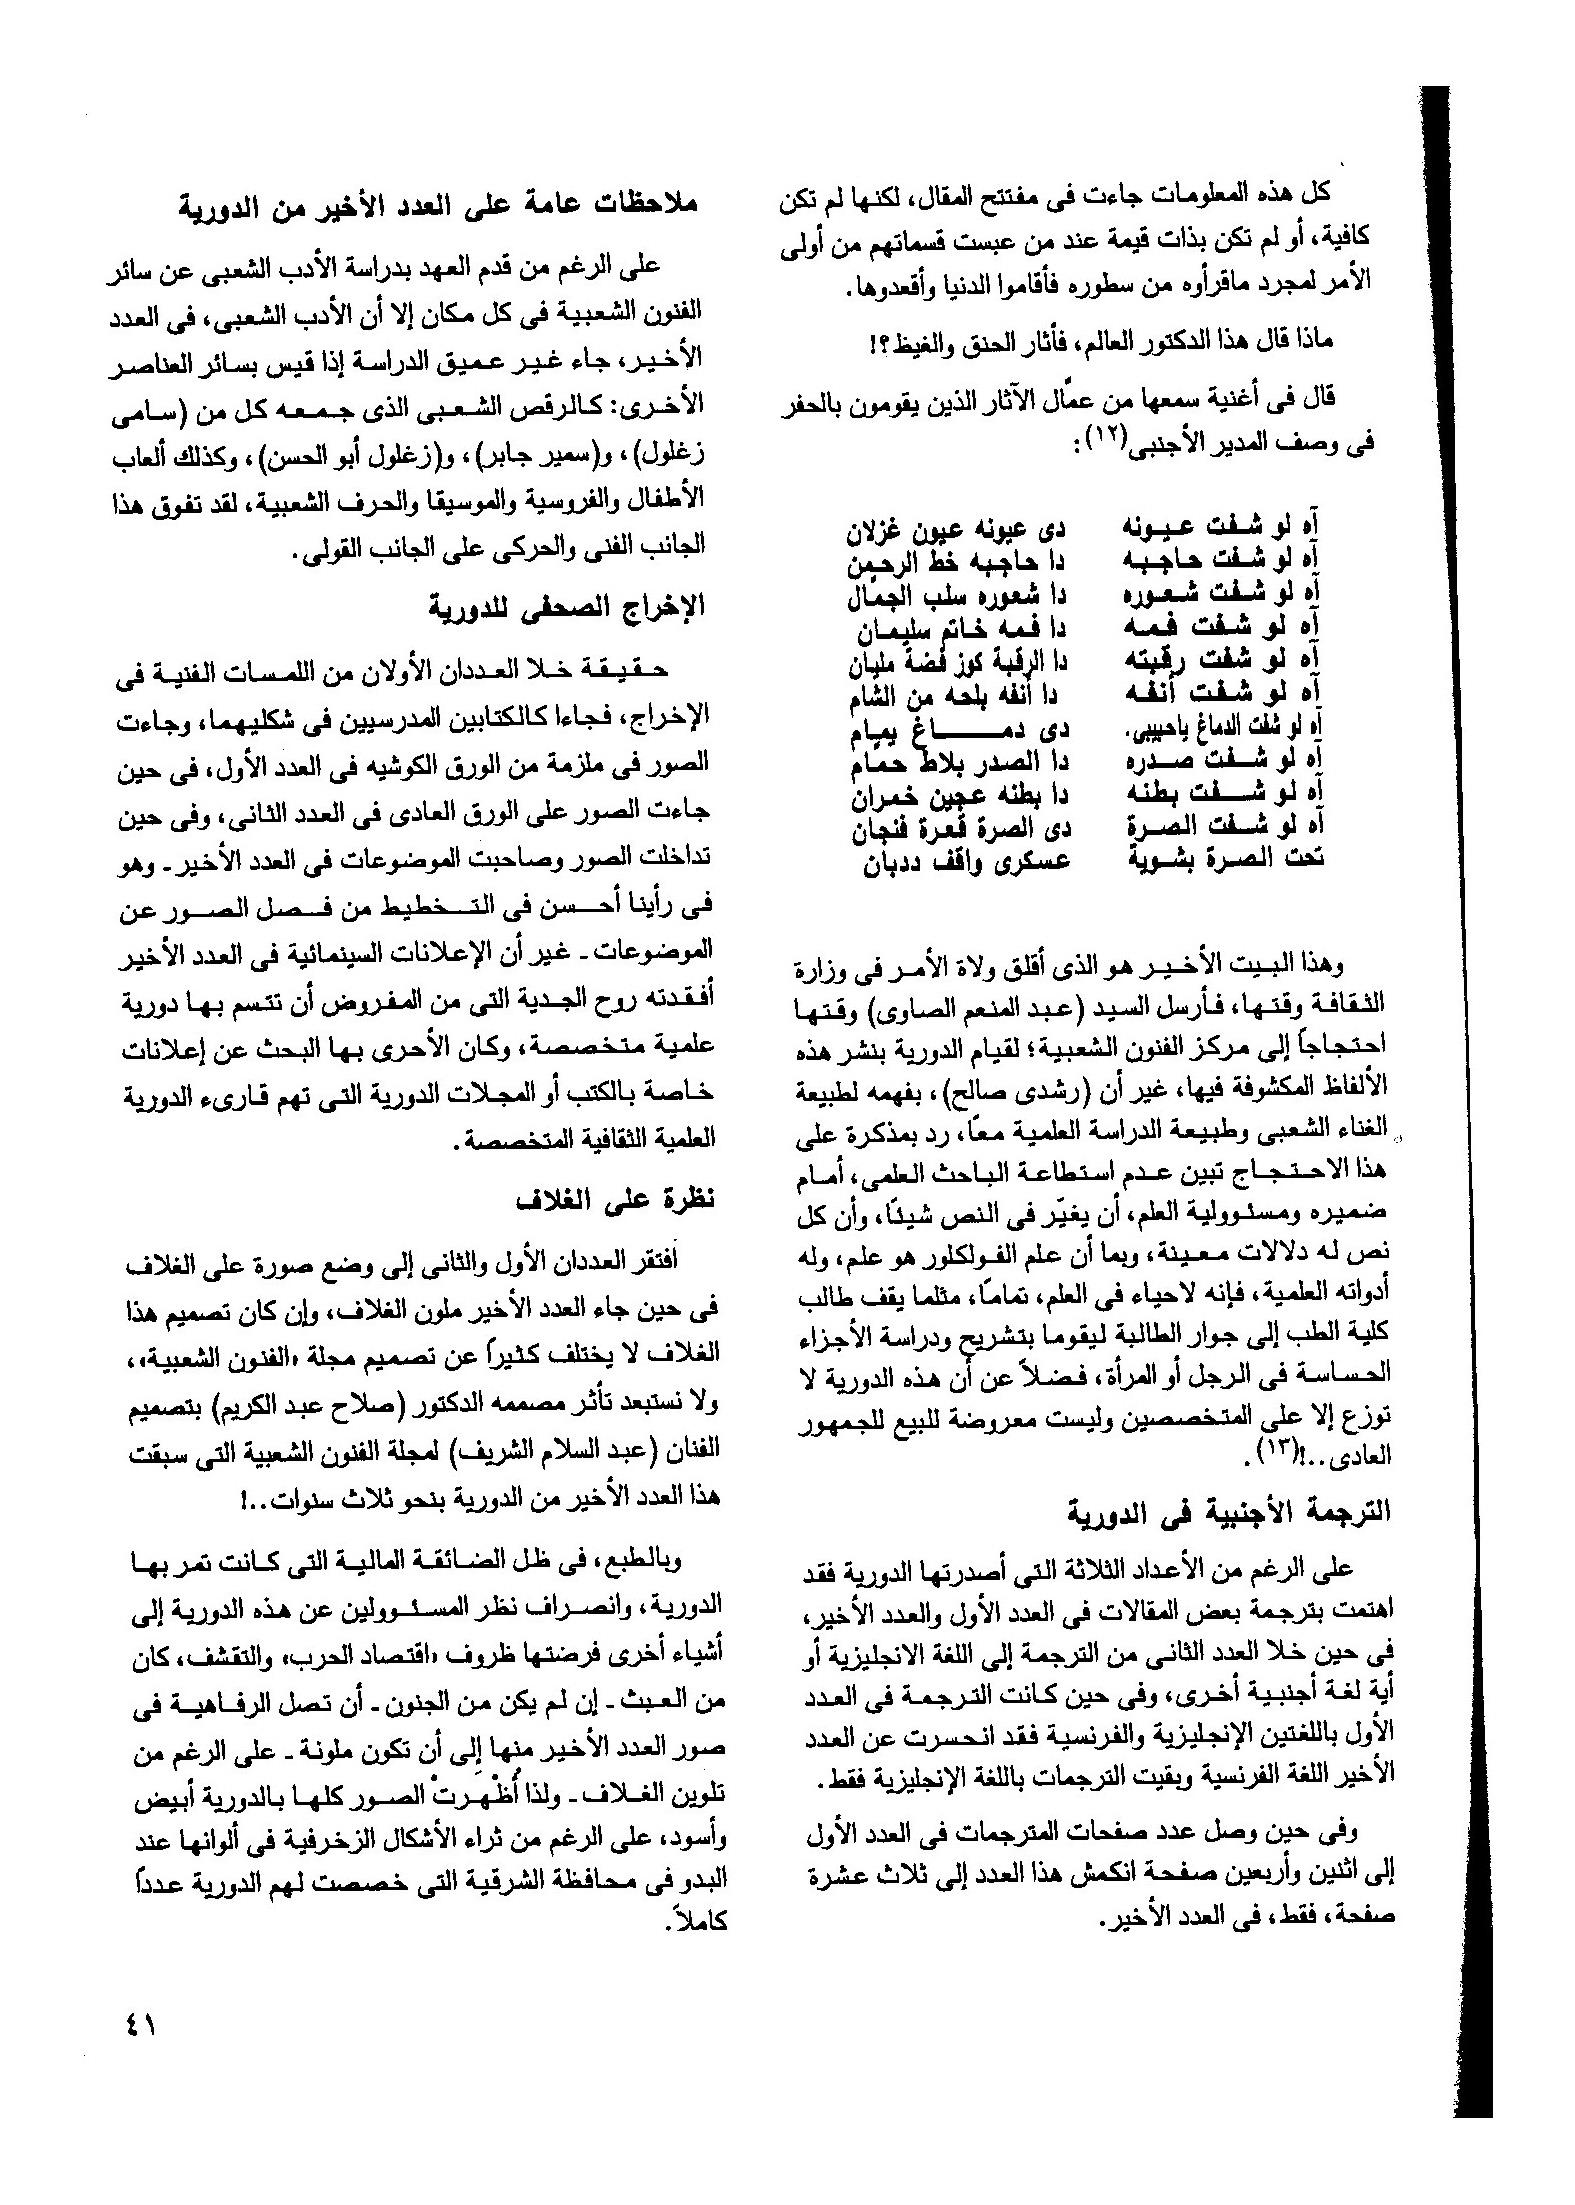 كل هذه المعلومات جاءت فى مفتتح المقال، لكنها لم تكن
كافية، أو لم تكن بذات قيمة عند من عبست قسماتهم من أولى
الأمر لمجرد ماقرأوه من سطوره فأقاموا الدنيا وأقعدوها.
ماذا قال هذا الدكتور العالم، فأثار الحنق والغيظ؟!
قال فى أغنية سمعها من عمّال الآثار الذين يقومون بالحفر
فى وصف المدير الأجنبى(١٢):
آه لو شفت عيونه دى عيونه عيون غزلان
آه لو شفت حاجبه دا حاجبه خط الرحمن
آه لو شفت شعوره دا شعوره سلب الجمال
آه لو شفت فمه دا فمه خاتم سليمان
آه لو شفت رقبته دا الرقبة كوز فضة مليان
آه لو شفت أنفه دا أنفه بلحه من الشام
آه لو شفت الدماغ ياحبيبى. دى دمـاغ يمام
آه لو شفت صدره دا الصدر بلاط حمام
آه لو شفت بطنه دا بطنه عجين خمران
آه لو شفت الصرة دى الصرة قعرة فنجان
تحت الصرة بشوية عسكرى واقف ددبان
وهذا البيت الأخير هو الذى أقلق ولاة الأمر فى وزارة
الثقافة وقتها، فأرسل السيد (عبد المنعم الصاوى) وقتها
احتجاجاً إلى مركز الفنون الشعبية؛ لقيام الدورية بنشر هذه
الألفاظ المكشوفة فيها، غير أن (رشدى صالح)، بفهمه لطبيعة
الغناء الشعبى وطبيعة الدراسة العلمية معاً، رد بمذكرة على
هذا الاحتجاج تبين عدم استطاعة الباحث العلمى، أمام
ضميره ومسئوولية العلم، أن يغيّر فى النص شيئاً، وأن كل
نص له دلالات معينة، وبما أن علم الفولكلور هو علم، وله
أدواته العلمية، فإنه لاحياء فى العلم، تماماً، مثلما يقف طالب
كلية الطب إلى جوار الطالبة ليقوما بتشريح ودراسة الأجزاء
الحساسة فى الرجل أو المرأة، فضلاً عن أن هذه الدورية لا
توزع إلا على المتخصصين وليست معروضة للبيع للجمهور
العادى..!(١٣).
الترجمة الأجنبية فى الدورية
على الرغم من الأعداد الثلاثة التى أصدرتها الدورية فقد
اهتمت بترجمة بعض المقالات فى العدد الأول والعدد الأخير،
فى حين خلا العدد الثانى من الترجمة إلى اللغة الانجليزية أو
أية لغة أجنبية أخرى، وفى حين كانت الترجمة فى العدد
الأول باللغتين الإنجليزية والفرنسية فقد انحسرت عن العدد
الأخير اللغة الفرنسية وبقيت الترجمات باللغة الإنجليزية فقط.
وفى حين وصل عدد صفحات المترجمات فى العدد الأول
إلى اثنين وأربعين صفحة انكمش هذا العدد إلى ثلاث عشرة
صفحة، فقط، فى العدد الأخير.
ملاحظات عامة على العدد الأخير من الدورية
على الرغم من قدم العهد بدراسة الأدب الشعبى عن سائر
الفنون الشعبية فى كل مكان إلا أن الأدب الشعبى، فى العدد
الأخير، جاء غير عميق الدراسة إذا قيس بسائر العناصر
الأخرى: كالرقص الشعبى الذى جمعه كل من (سامى
زغلول)، و(سمير جابر)، و(زغلول أبو الحسن)، وكذلك ألعاب
الأطفال والفروسية والموسيقا والحرف الشعبية، لقد تفوق هذا
الجانب الفنى والحركى على الجانب القولى.
الإخراج الصحفى للدورية
حقيقة خلا العددان الأولان من اللمسات الفنية فى
الإخراج، فجاءا كالكتابين المدرسيين فى شكليهما، وجاءت
الصور فى ملزمة من الورق الكوشيه فى العدد الأول، فى حين
جاءت الصور على الورق العادى فى العدد الثانى، وفى حين
تداخلت الصور وصاحبت الموضوعات فى العدد الأخير ـ وهو
فى رأينا أحسن فى التخطيط من فصل الصور عن
الموضوعات ـ غير أن الإعلانات السينمائية فى العدد الأخير
أفقدته روح الجدية التى من المفروض أن تتسم بها دورية
علمية متخصصة، وكان الأحرى بها البحث عن إعلانات
خاصة بالكتب أو المجلات الدورية التى تهم قارىء الدورية
العلمية الثقافية المتخصصة.
نظرة على الغلاف
افتقر العددان الأول والثانى إلى وضع صورة على الغلاف
فى حين جاء العدد الأخير ملون الغلاف، وإن كان تصميم هذا
الغلاف لا يختلف كثيراً عن تصميم مجلة «الفنون الشعبية»،
ولا نستبعد تأثر مصممه الدكتور (صلاح عبد الكريم) بتصميم
الفنان (عبد السلام الشريف) لمجلة الفنون الشعبية التى سبقت
هذا العدد الأخير من الدورية بنحو ثلاث سنوات..!
وبالطبع، فى ظل الضائقة المالية التى كانت تمر بها
الدورية، وانصراف نظر المسئوولين عن هذه الدورية إلى
أشياء أخرى فرضتها ظروف «اقتصاد الحرب» والتقشف، كان
من العبث ـ إن لم يكن من الجنون ـ أن تصل الرفاهية فى
صور العدد الأخير منها إلى أن تكون ملونة ـ على الرغم من
تلوين الغلاف ـ ولذا أُظْهرتْ الصور كلها بالدورية أبيض
وأسود، على الرغم من ثراء الأشكال الزخرفية فى ألوانها عند
البدو فى محافظة الشرقية التى خصصت لهم الدورية عدداً
كاملاً.
٤١